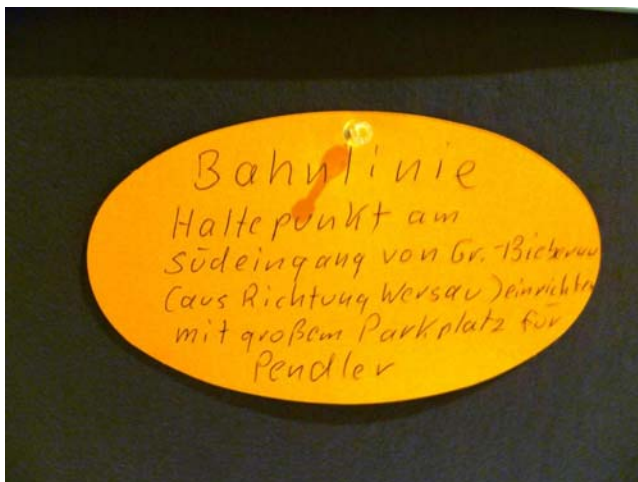 Bahnlinie
Haltepunkt am
Südeingang von Gr.-Bieberau
(aus Richtung Wersau) einrichten
mit großem Parkplatz für
Pendler